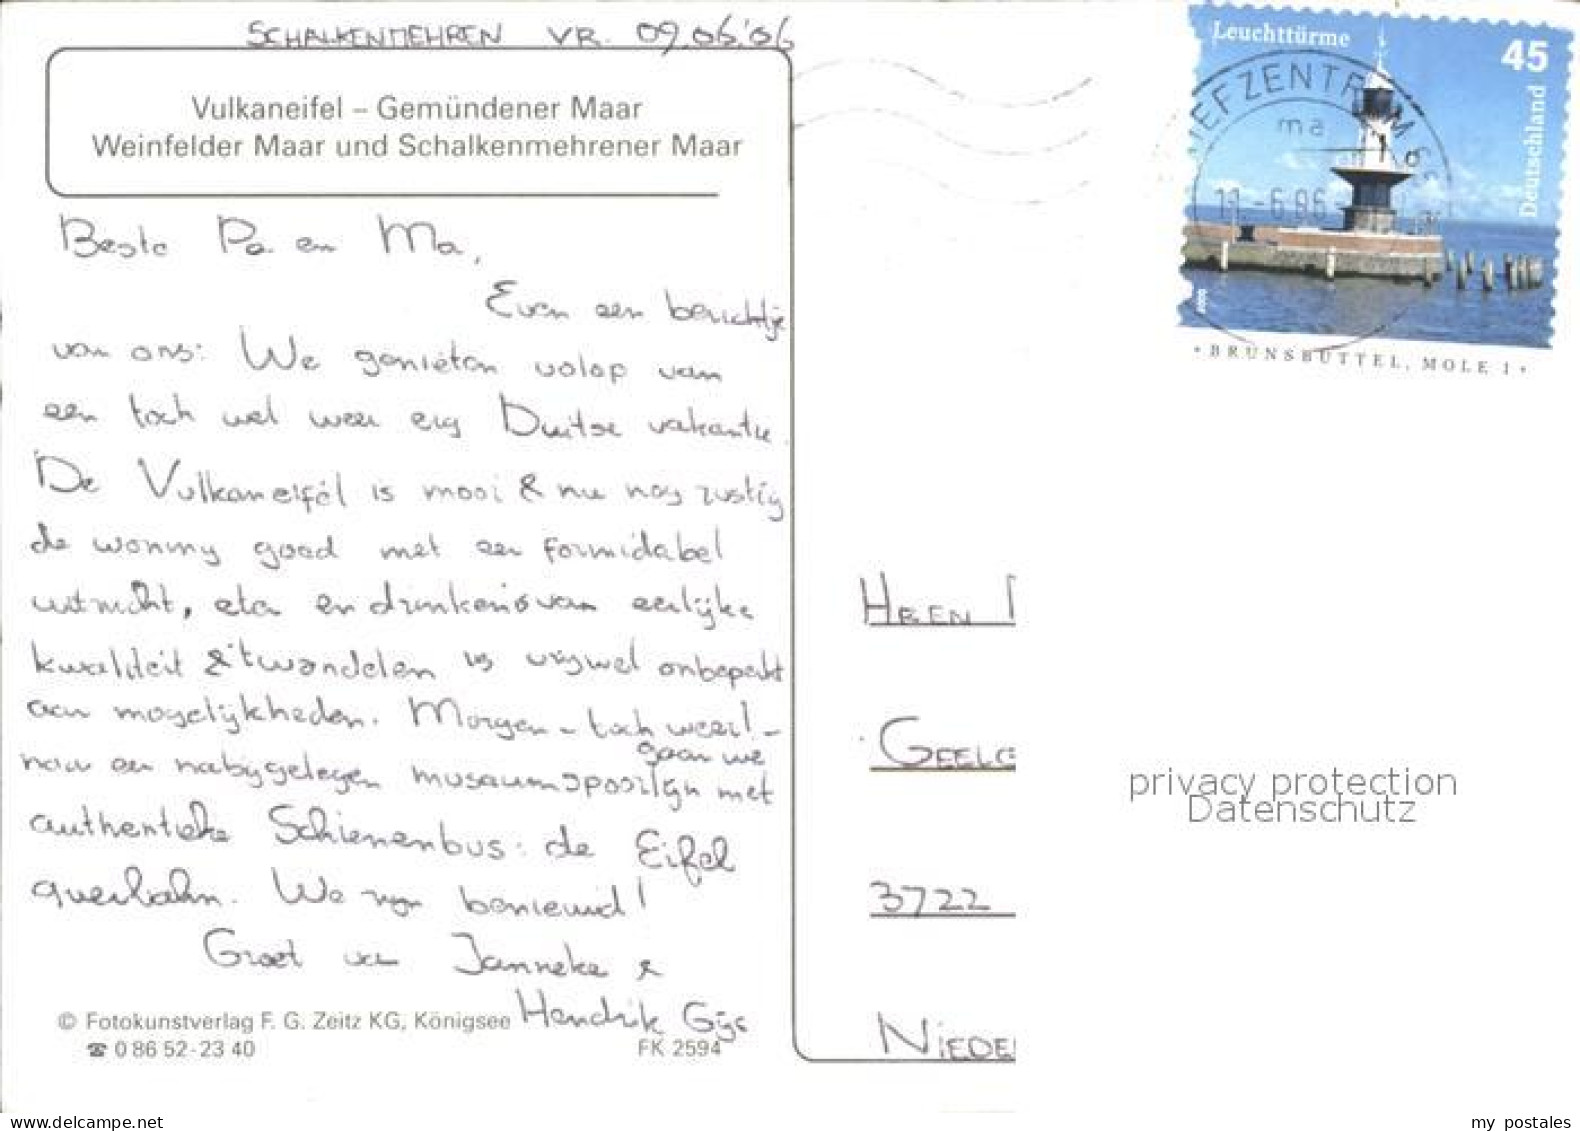 SCHALKENMEHREN VR. 09.06.'06
Vulkaneifel – Gemündener Maar
Weinfelder Maar und Schalkenmehrener Maar
Beste Pa en Ma,
Even een berichtje
van ons: We genieten volop van
een toch wel weer erg Duitse vakantie.
De Vulkaneifel is mooi & nu nog rustig
de woning goed met een formidabel
uitzicht, eten en drinken is van eerlijke
kwaliteit & 't wandelen is vrijwel onbeperkt
aan mogelijkheden. Morgen - toch weer! -
gaan we
naar een nabijgelegen museumspoorlijn met
authentieke Schienenbus: de Eifel
querbahn. We zijn benieuwd!
Groet van Janneke &
Hendrik Gijs
© Fotokunstverlag F. G. Zeitz KG, Königsee
☎ 0 86 52 - 23 40
FK 2594
Leuchttürme
45
Deutschland
BRIEFZENTRUM
ma
11.-6.06
• BRUNSBÜTTEL, MOLE 1 •
HEEN
GEELG
3722
NIEDE
privacy protection
Datenschutz
ansichtskarten-center
my postales